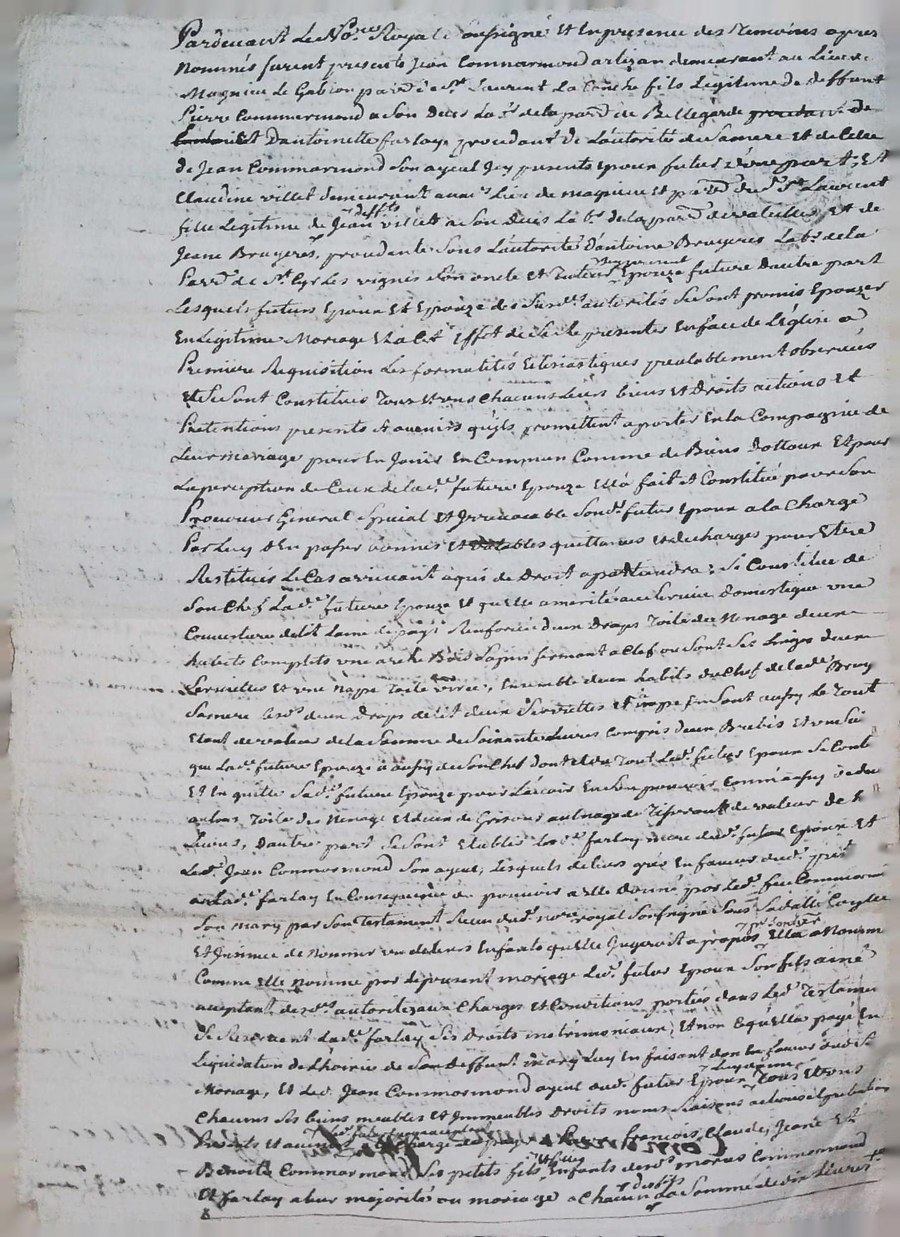 Pardevant Le No.re Royal soussigné Et En presence des Temoins apres
Nommés furent presents Jean Commarmond artizan demeurant au Lieu de
Magnieu Le Gabion par.se de St Laurent La Conche fils Legitime de deffunt
Pierre Commarmond a Son deces La.r de la par.se de Bellegarde
Et Dantoinette farlay, procedant De L'autorité de Samere Et de Celle
de Jean Commarmond Son ayeul Icy presents Epoux futur d'une part, Et
Claudine villet demeurant aud.t Lieu de magnieu Et par.se dud.t St Laurent
fille Legitime de deffts Jean villet a Son deces La.r de la par.se de valeille, Et de
Jeane Bruyeres, procedante Sous L'autorité d'antoine Bruyeres La.r de la
Par.se de St Cyr Les vignes Son oncle Et Tuteur Epouze future Dautre part
Lesquels futurs Epoux Et Epouze des Susd.es autorités Se Sont promis Epouzer
En Legitime Mariage Et a Cet Effet de Se presenter En face de L'eglise a
Premiere Requisition Les formalités Eclesiastiques prealablement observées
Et Se Sont Constitués Tous Et uns Chacuns Leurs biens Et Droits actions Et
Pretentions presents Et avenirs qu'ils promettent aporter En la Compagnie de
Leur mariage pour En Jouir En Commun Comme de Biens Dottaux Et pour
La perception de Ceux de lad.e future Epouze Elle a fait Et Constitué pour Son
Procureur General Special Et Irrevocable Sond.t futur Epoux a la Charge
Par Luy d'En passer bonnes Et valables quittances Et decharges pour Etre
Restitués Le Cas arrivant a qui de Droit apartiendra; Se Constitue de
Son Chef Lad.e future Epouze Et quelle a merité au Service domestique une
Couverture de lit Laine de pays Renforcée deux Draps Toile de Menage deux
habits Complets une arche Bois Sapin fermant a Clef ou Sont Ses Linges deux
Serviettes Et une Nappe Toile, Ensemble deux habits du Chef de lad.e Bruy
Samere Et deux Draps de lit deux Serviettes Et Enfant aussy Le Tout
Etant de valeur de la Somme de Soixante Livres Compris deux Brebis
que lad.e future Epouze a aussy de Son Chef dont Et du Tout Led.t futur Epoux Se Cont
Et En quitte Sad.e future Epouze pour Lavoir En Son pouvoir Comme aussy de deux
autres Toile de Menage
Livres, Dautre part Se Sont Etablis Lad.e farlay mere dud.t futur Epoux Et
Led.t Jean Commarmond Son ayeul, Lesquels de leur gré En faveur dud.t pnt
Lad.e farlay En Consequence du pouvoir a Elle donné par Led.t feu Commarmond
Son mary par Son Testament Recu dud.t no.re royal Soussigné Sous Sa datte
Et Insinué de Nommer un de leurs Enfants quelle Jugeroit a propos Elle a Nommé
Comme Elle Nomme par Le present mariage Led.t futur Epoux Son fils ainé
aceptant de Sd.es autorités aux Charges Et Conditions portées dans Led.t Testament
Se Reservant Lad.e farlay Ses Droits matrimoniaux, Et non Ce quElle a payé En
Liquidation de L'hoirie de Son deffunt mary Luy En faisant don En faveur dud.t
Mariage, Et Led.t Jean Commarmond ayeul dud.t futur Epoux Tous Et uns
Chacuns Ses biens meubles Et Immeubles Droits noms Raisons actions Et pretentions
Presents Et avenirs a la Charge de payer a Pierre, francois, Claude, Jeane Et
Benoite Commarmond Ses petits fils Et filles Enfants desd.ts maries Commarmond
Et farlay a leur majorité ou mariage a Chacun desdits La Somme de dix Livres